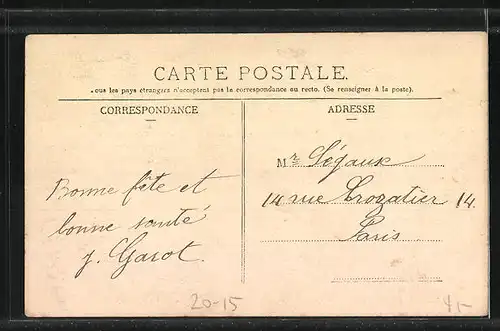 CARTE POSTALE.
ous les pays étrangers n'acceptent pas la correspondance au recto. (Se renseigner à la poste).
CORRESPONDANCE
Bonne fête et
bonne santé
J. Garot.
ADRESSE
Mr Ségaux
14 rue Crozatier 14.
Paris
20-15
4,-